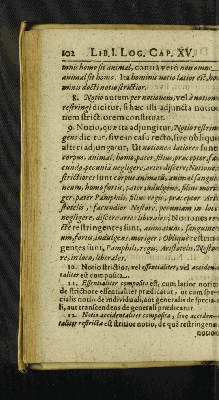 102 LIB. I. LOG. CAP. XV.
omnis homo sit animal, contra verò non omne
animal sit homo. Ita hominis notio latior est, ho-
minis docti notio strictior.
8. Notio autem per notionem, vel à notione
restringi dicitur, si hæc illi adjuncta notio-
nem strictiorem constituat.
9. Notio, quæ ita adjungitur, Notio restrin-
gens dicitur, sive in casu recto, sive obliquo
alteri adjungatur. Ut notiones latiores sunt
corpus, animal, homo, pater, filius, præceptor,
negligens,
strictiores sunt corpus animatum, animal sangui-
neum, homo fortis, pater indulgens, filius mori-
ger, pater Pamphili, filius regis, præceptor Ari-
stotelis, facundior Nestore,
negligere, discere artes liberales: Notiones re-
ctè restringentes sunt, animatum, sangui-
neum, forte, indulgens, moriger: Obliquè restrin-
gentes sunt, Pamphili, regis, Aristotelis,
re, in loco, liberales.
10. Notio strictior, vel essentialiter, vel acciden-
taliter est composita.
11. Essentialiter composita est, cum latior notio
de strictiore essentialiter prædicatur, ut cum spe-
cialis notio de individuali, aut generalis de specia-
li, aut transcendens de generali prædicatur.
12. Notio accidentaliter composita, sive acciden-
taliter restricta est strictior notio, de qua restringens
notio